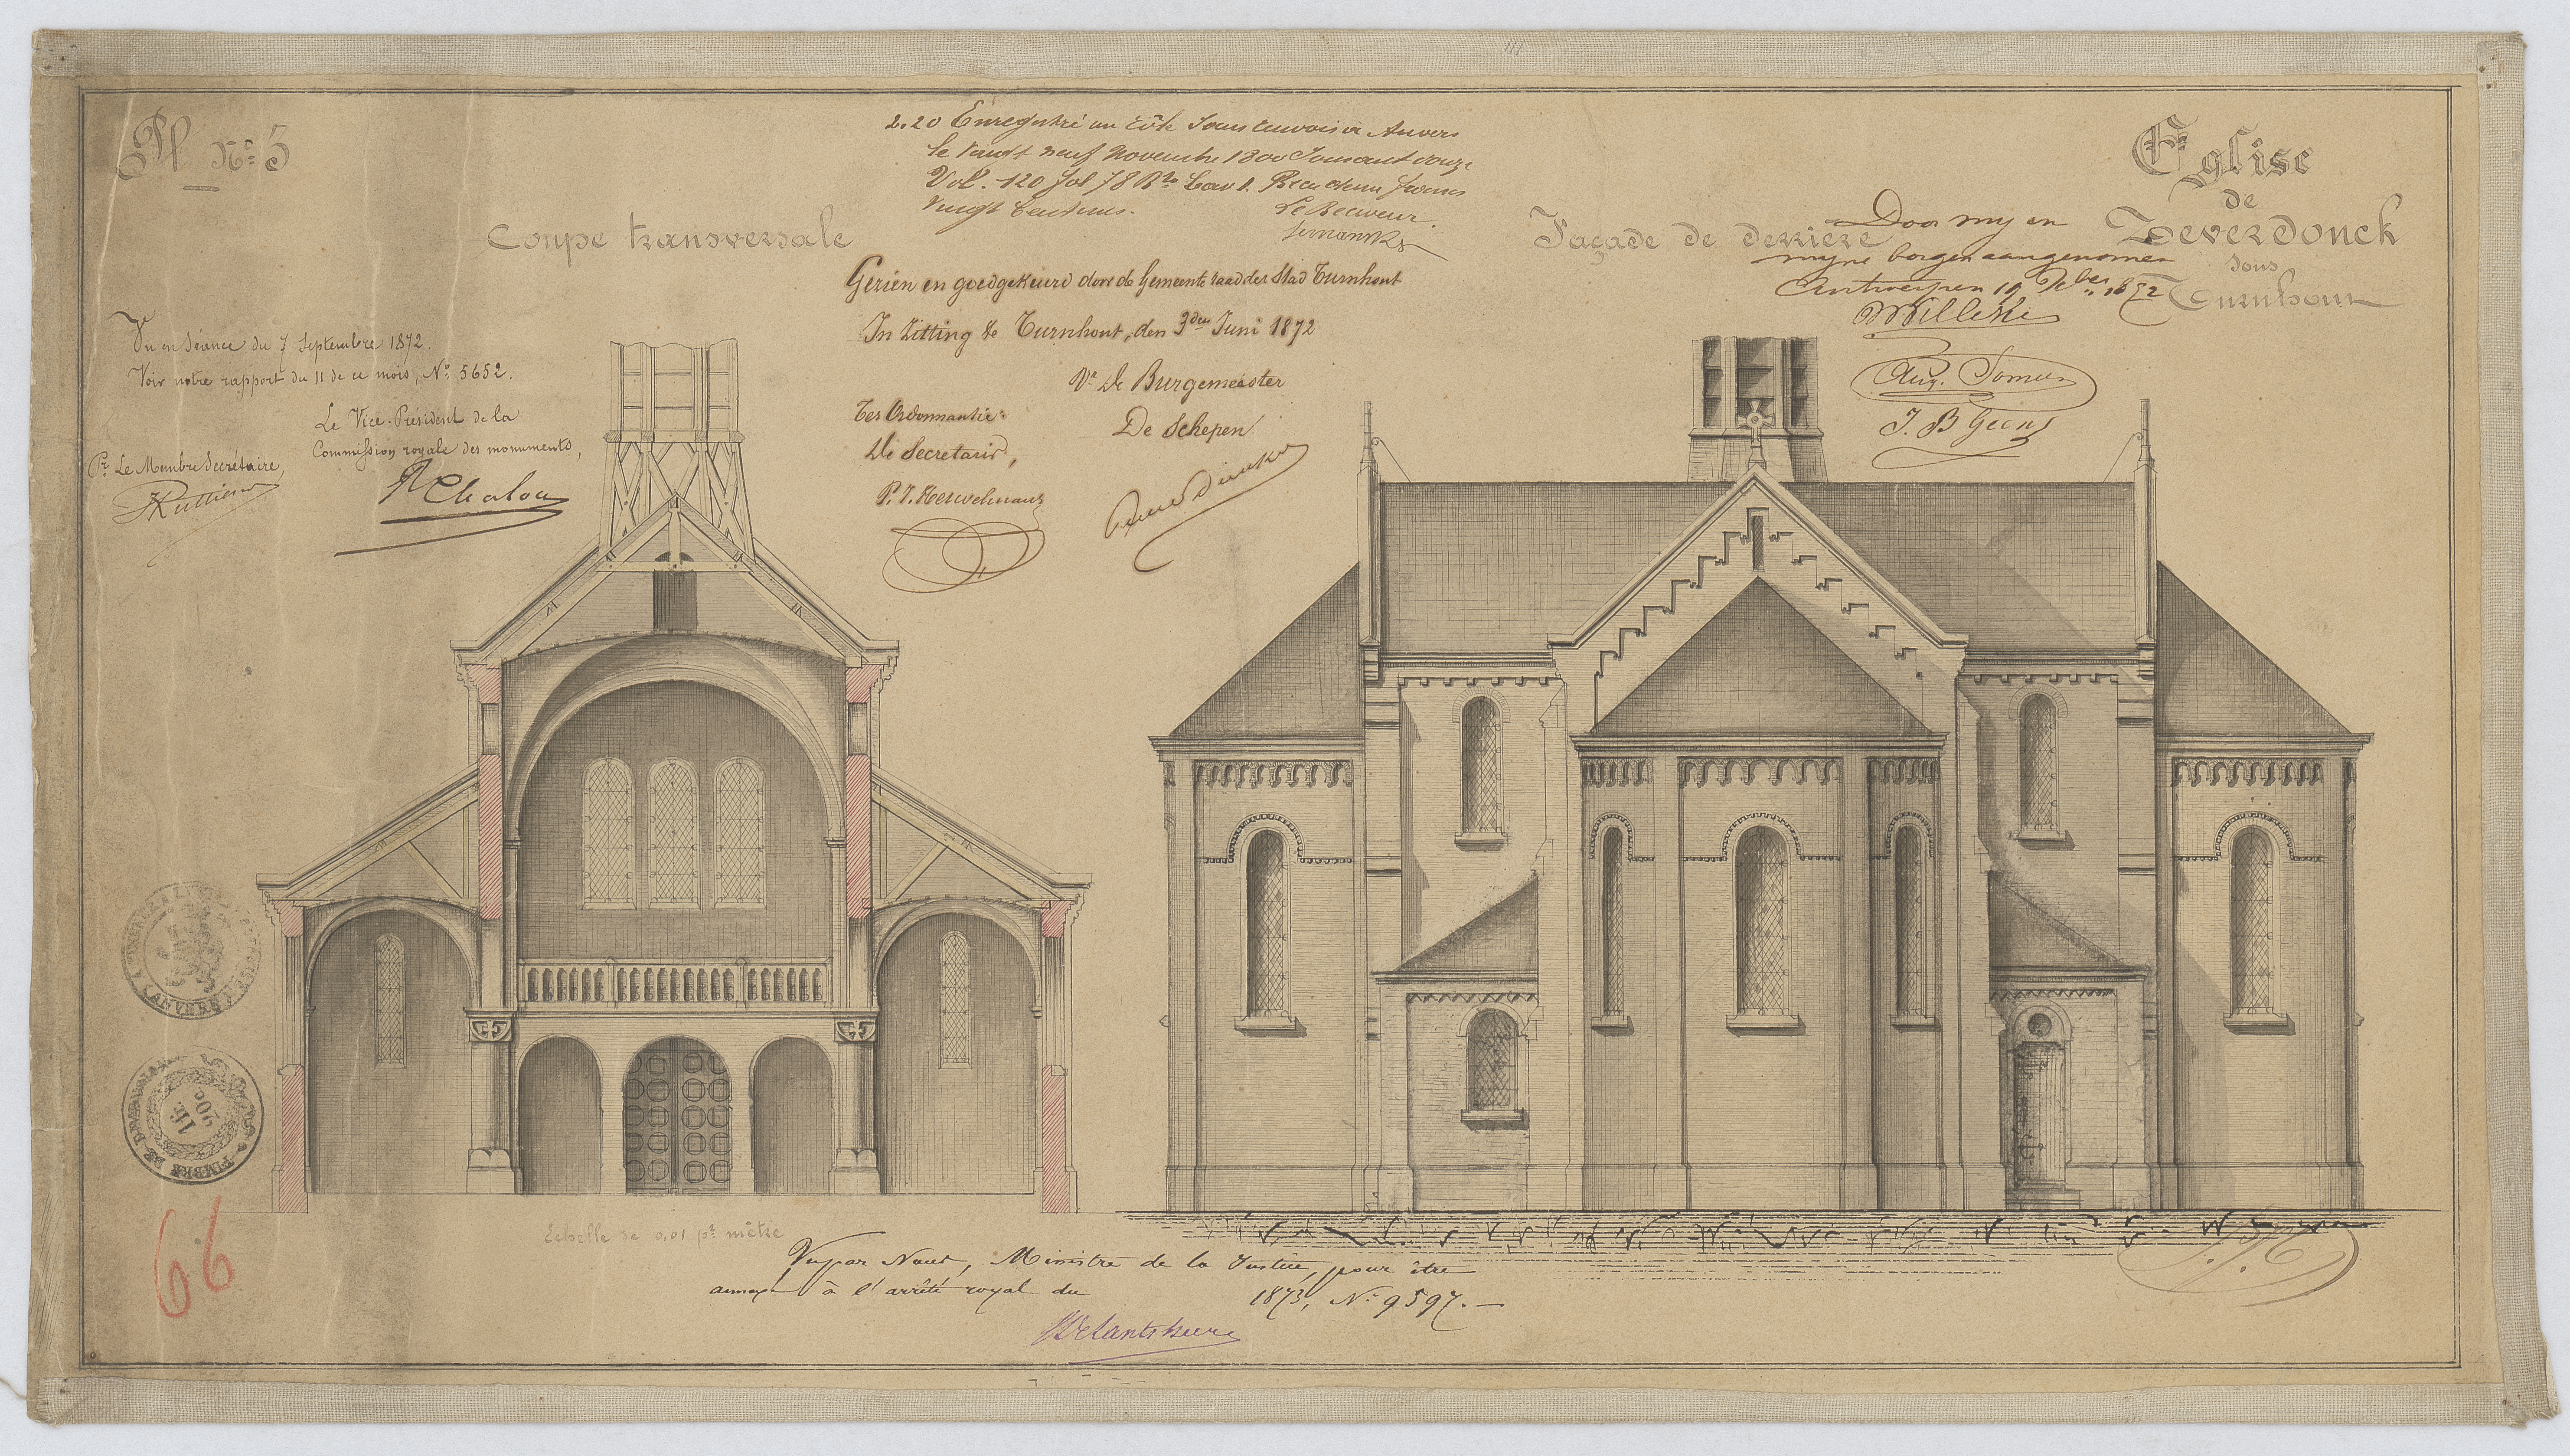 Pl Nº 5
2.20 Enregistré au
Anvers
le vingt neuf Novembre 1800 Soixante douze
Vol. 120 fol 78 Rto Case 1. Reçu deux francs
vingt Centimes.
Le Receveur
Coupe transversale
Façade de derrière
Eglise
de
Zeverdonck
sous
Turnhout
Door my en
myne borgen aangenomen
Antwerpen 19 1872
Willeke
Aug. Somers
J. B Geens
Gezien en goedgekeurd door de Gemeente raad der Stad Turnhout
In Zitting te Turnhout, den 3den Juni 1872
Vr De Burgemeester
De Schepen
Ter Ordonnantie:
De Secretaris,
Vu en séance du 7 Septembre 1872.
Voir notre rapport du 11 de ce mois, Nº 5652.
Le Vice-Président de la
Commission royale des monuments,
Pr Le Membre Secrétaire,
R Chalon
ANVERS
TIMBRE DE DIMENSION
1F.
20c
66
Echelle de 0,01 pr mètre
Vu par Nous, Ministre de la Justice, pour être
annexé à l'arrêté royal du 1873, Nº 9597. —